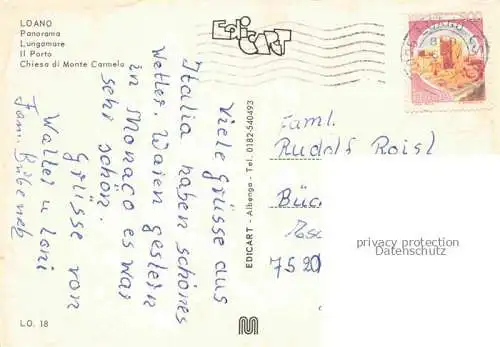 LOANO
Panorama
Lungomare
Il Porto
Chiesa di Monte Carmelo
EdiCART
Viele Grüsse aus
Italia haben schönes
Wetter. Waren gestern
in Monaco es war
sehr schön.
Grüsse von
Walter u Loni
Fam.
EDICART - Albenga - Tel. 0182-540493
Faml.
Rudolf Roisl
Büc
7520
privacy protection
Datenschutz
LO. 18